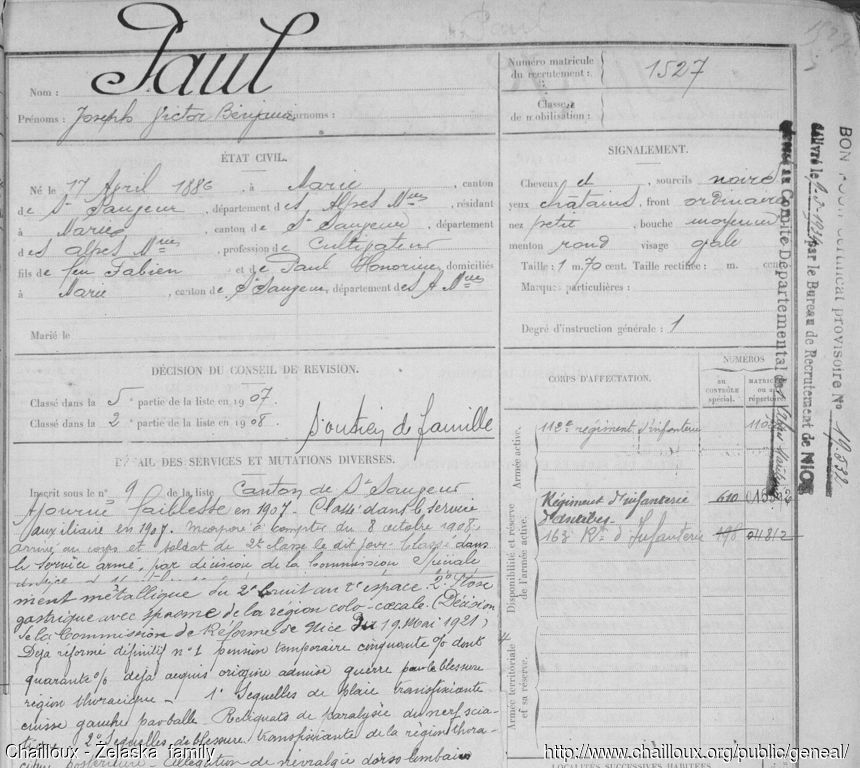 Paul
Nom :
Prénoms : Joseph Victor Bénjamin Surnoms :
Numéro matricule du recrutement : 1527
Classe de mobilisation :
ÉTAT CIVIL.
Né le 17 April 1886, à Marie, canton
de St Sauveur, département des Alpes Mmes, résidant
à Marie, canton de St Sauveur, département
des Alpes Mmes, profession de Cultivateur
fils de feu Fabien et de Paul Honorine, domiciliés
à Marie, canton de St Sauveur, département des A Mmes
Marié le
SIGNALEMENT.
Cheveux et sourcils noirs
yeux chatains, front ordinaire
nez petit, bouche moyenne
menton rond visage
Taille : 1 m. 70 cent. Taille rectifiée : m. cent
Marques particulières :
Degré d'instruction générale : 1
DÉCISION DU CONSEIL DE REVISION.
Classé dans la 5 partie de la liste en 1907
Classé dans la 2 partie de la liste en 1908
Soutien de famille
DÉTAIL DES SERVICES ET MUTATIONS DIVERSES.
Inscrit sous le no 9 de la liste Canton de St Sauveur
Ajourné faiblesse en 1907 - Classé dans le service
auxiliaire en 1907. Incorporé à compter du 8 octobre 1908.
arrivé au corps et soldat de 2e classe le dit jour. Classé dans
le service armé, par décision de la Commission Spéciale
ment métallique du 2e bruit au 2e espace 2o Ptose
gastrique avec spasme de la région colo-cœcale. (Décision
de la Commission de Réforme de Nice du 19 Mai 1921)
Déjà réformé définitif no 1 pension temporaire cinquante % dont
quarante % déjà acquis origine admise guerre pour blessure
région thoracique - 1o Sequelles de plaie transfixiante
cuisse gauche par balle. Reliquats de paralysie du nerf scia-
2o Sequelles de blessure transfixiante de la région thora-
postérieure. Allégation de névralgie dorso-lombaire
CORPS D'AFFECTATION.
NUMÉROS
au contrôle spécial.
Armée active.
112e régiment d'infanterie
Disponibilité et réserve de l'armée active.
Régiment d'infanterie d'Antibes 610
163 Rt d'Infanterie
Armée territoriale et sa réserve.
LOCALITÉS SUCCESSIVES HABITÉES
Comité Départemental
délivré le par le Bureau de Recrutement de NICE
certificat provisoire No
Chailloux - Zelaska family
http://www.chailloux.org/public/geneal/